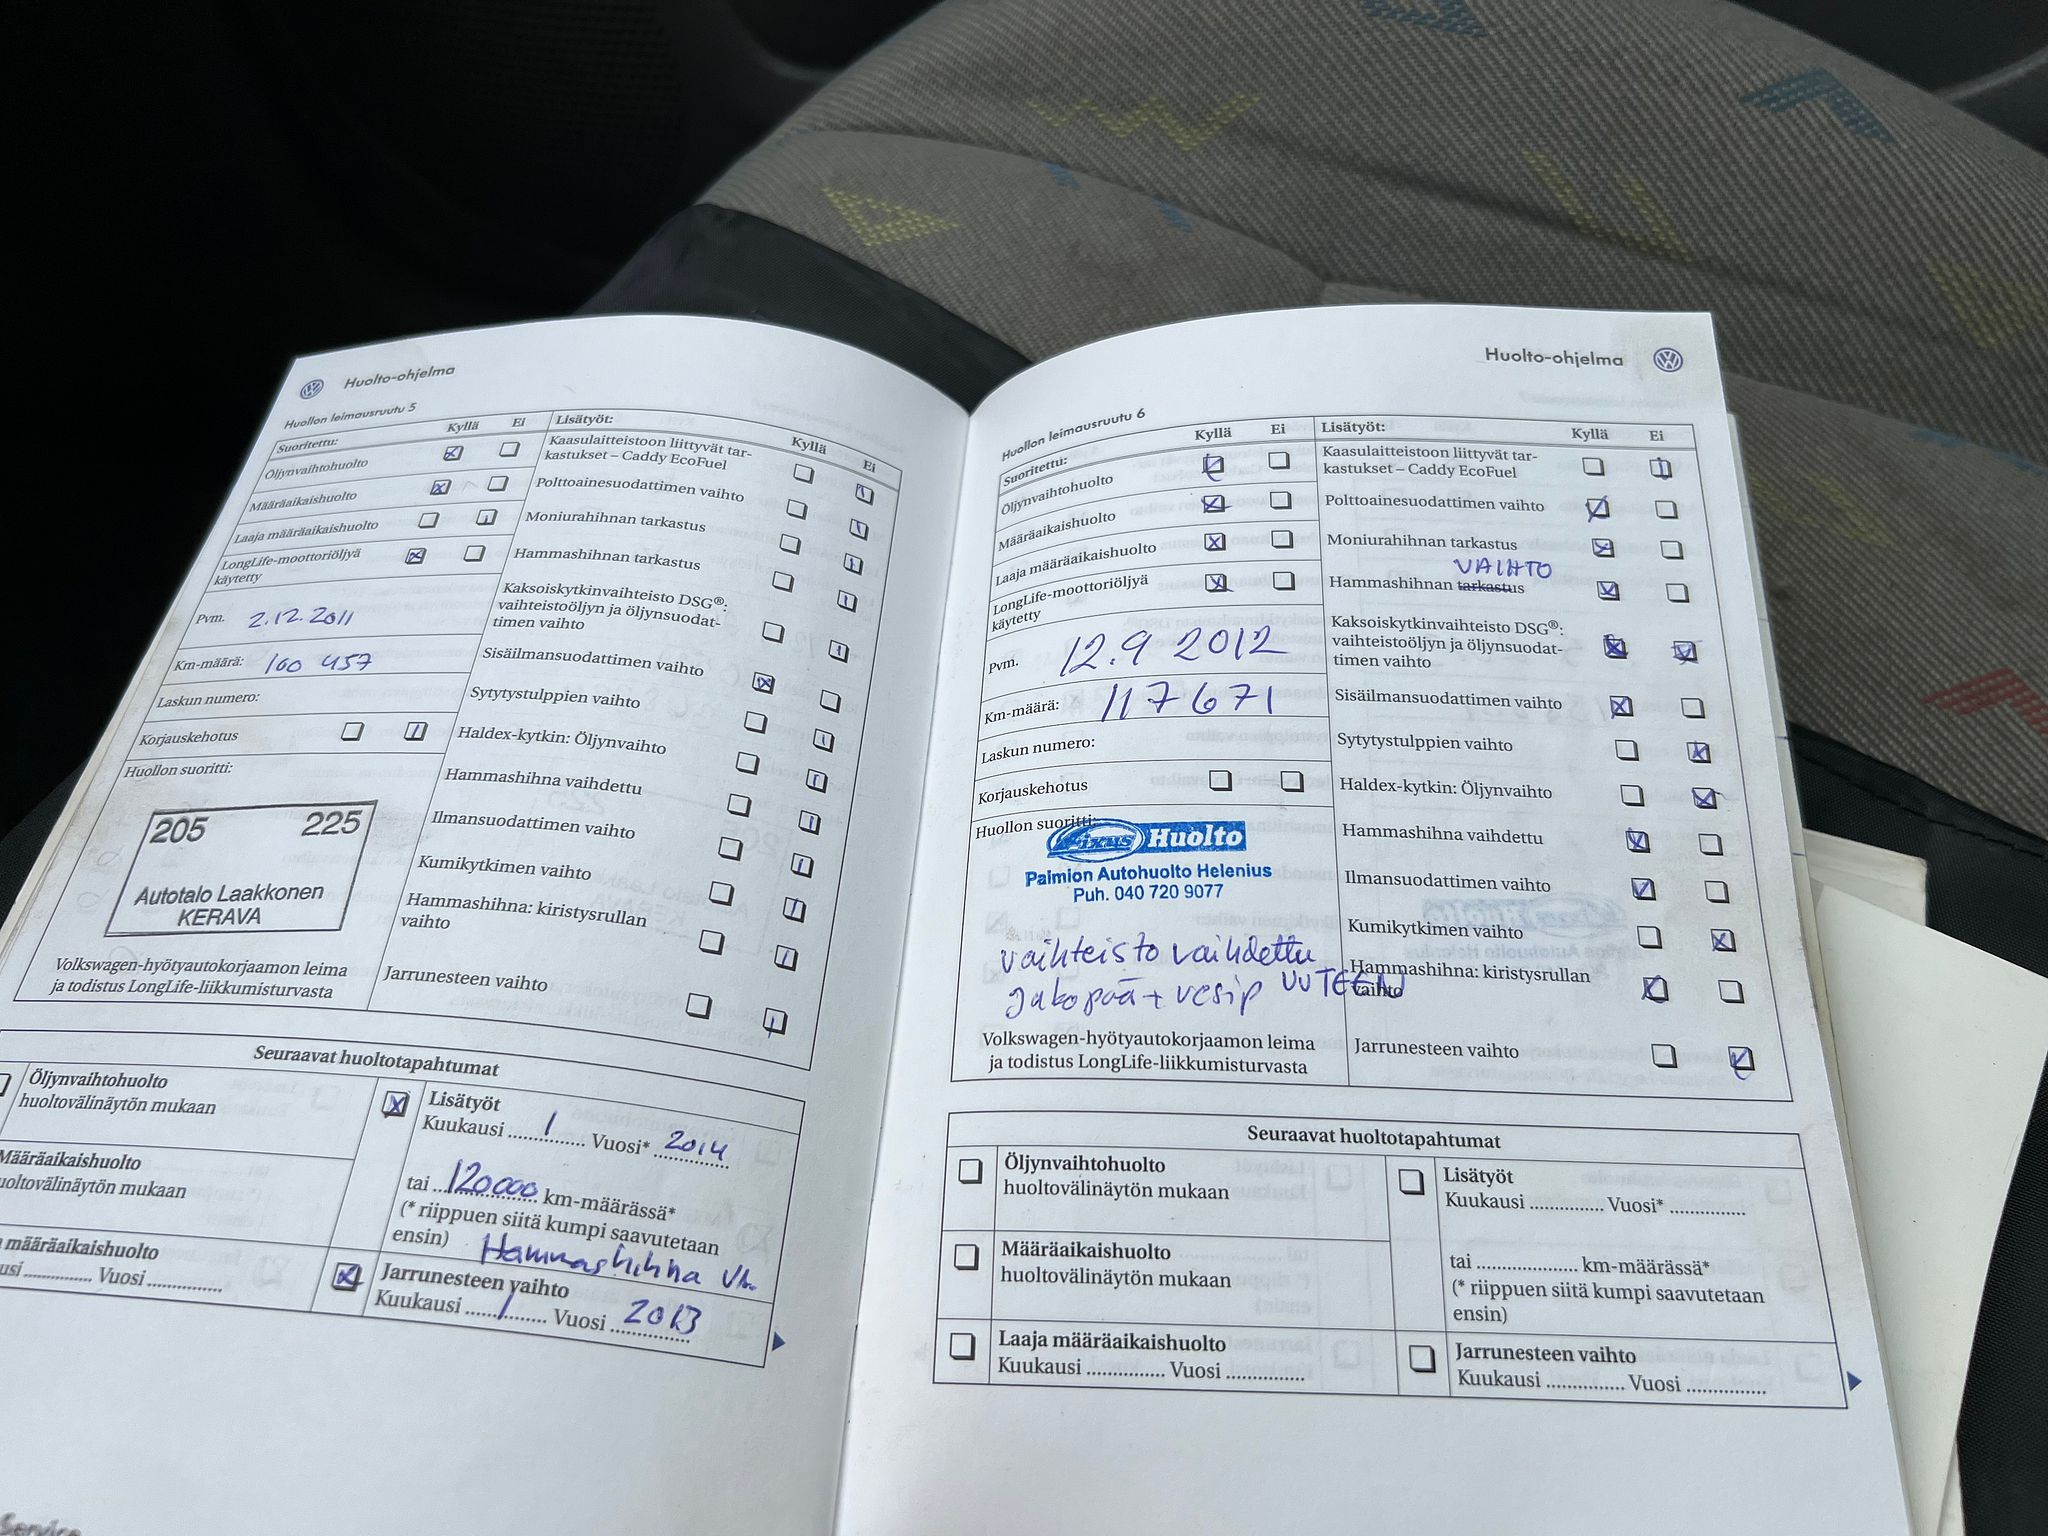 Huolto-ohjelma
Huollon leimausruutu 5
Suoritettu: Kyllä Ei
Öljynvaihtohuolto
Määräaikaishuolto
Laaja määräaikaishuolto
LongLife-moottoriöljyä
käytetty
Pvm. 2.12.2011
Km-määrä: 100 457
Laskun numero:
Korjauskehotus
Huollon suoritti:
205 225
Autotalo Laakkonen
KERAVA
Volkswagen-hyötyautokorjaamon leima
ja todistus LongLife-liikkumisturvasta
Lisätyöt: Kyllä Ei
Kaasulaitteistoon liittyvät tar-
kastukset – Caddy EcoFuel
Polttoainesuodattimen vaihto
Moniurahihnan tarkastus
Hammashihnan tarkastus
Kaksoiskytkinvaihteisto DSG®:
vaihteistoöljyn ja öljynsuodat-
timen vaihto
Sisäilmansuodattimen vaihto
Sytytystulppien vaihto
Haldex-kytkin: Öljynvaihto
Hammashihna vaihdettu
Ilmansuodattimen vaihto
Kumikytkimen vaihto
Hammashihna: kiristysrullan
vaihto
Jarrunesteen vaihto
Seuraavat huoltotapahtumat
Öljynvaihtohuolto
huoltovälinäytön mukaan
Määräaikaishuolto
uoltovälinäytön mukaan
määräaikaishuolto
usi .............. Vuosi ...............
Lisätyöt
Kuukausi ...... 1 ...... Vuosi* 2014
tai 120000 km-määrässä*
(* riippuen siitä kumpi saavutetaan
ensin) Hammashihna vh.
Jarrunesteen vaihto
Kuukausi ...... 1 ...... Vuosi 2013
Service
Huolto-ohjelma
Huollon leimausruutu 6
Suoritettu: Kyllä Ei
Öljynvaihtohuolto
Määräaikaishuolto
Laaja määräaikaishuolto
LongLife-moottoriöljyä
käytetty
Pvm. 12.9 2012
Km-määrä: 117671
Laskun numero:
Korjauskehotus
Huollon suoritti:
Fixus Huolto
Paimion Autohuolto Helenius
Puh. 040 720 9077
vaihteisto vaihdettu
Jakopää + vesip UUTEEN
Volkswagen-hyötyautokorjaamon leima
ja todistus LongLife-liikkumisturvasta
Lisätyöt: Kyllä Ei
Kaasulaitteistoon liittyvät tar-
kastukset – Caddy EcoFuel
Polttoainesuodattimen vaihto
Moniurahihnan tarkastus
VAIHTO
Hammashihnan tarkastus
Kaksoiskytkinvaihteisto DSG®:
vaihteistoöljyn ja öljynsuodat-
timen vaihto
Sisäilmansuodattimen vaihto
Sytytystulppien vaihto
Haldex-kytkin: Öljynvaihto
Hammashihna vaihdettu
Ilmansuodattimen vaihto
Kumikytkimen vaihto
Hammashihna: kiristysrullan
vaihto
Jarrunesteen vaihto
Seuraavat huoltotapahtumat
Öljynvaihtohuolto
huoltovälinäytön mukaan
Määräaikaishuolto
huoltovälinäytön mukaan
Laaja määräaikaishuolto
Kuukausi ............... Vuosi ...............
Lisätyöt
Kuukausi .............. Vuosi* ...............
tai .................... km-määrässä*
(* riippuen siitä kumpi saavutetaan
ensin)
Jarrunesteen vaihto
Kuukausi ............... Vuosi ...............